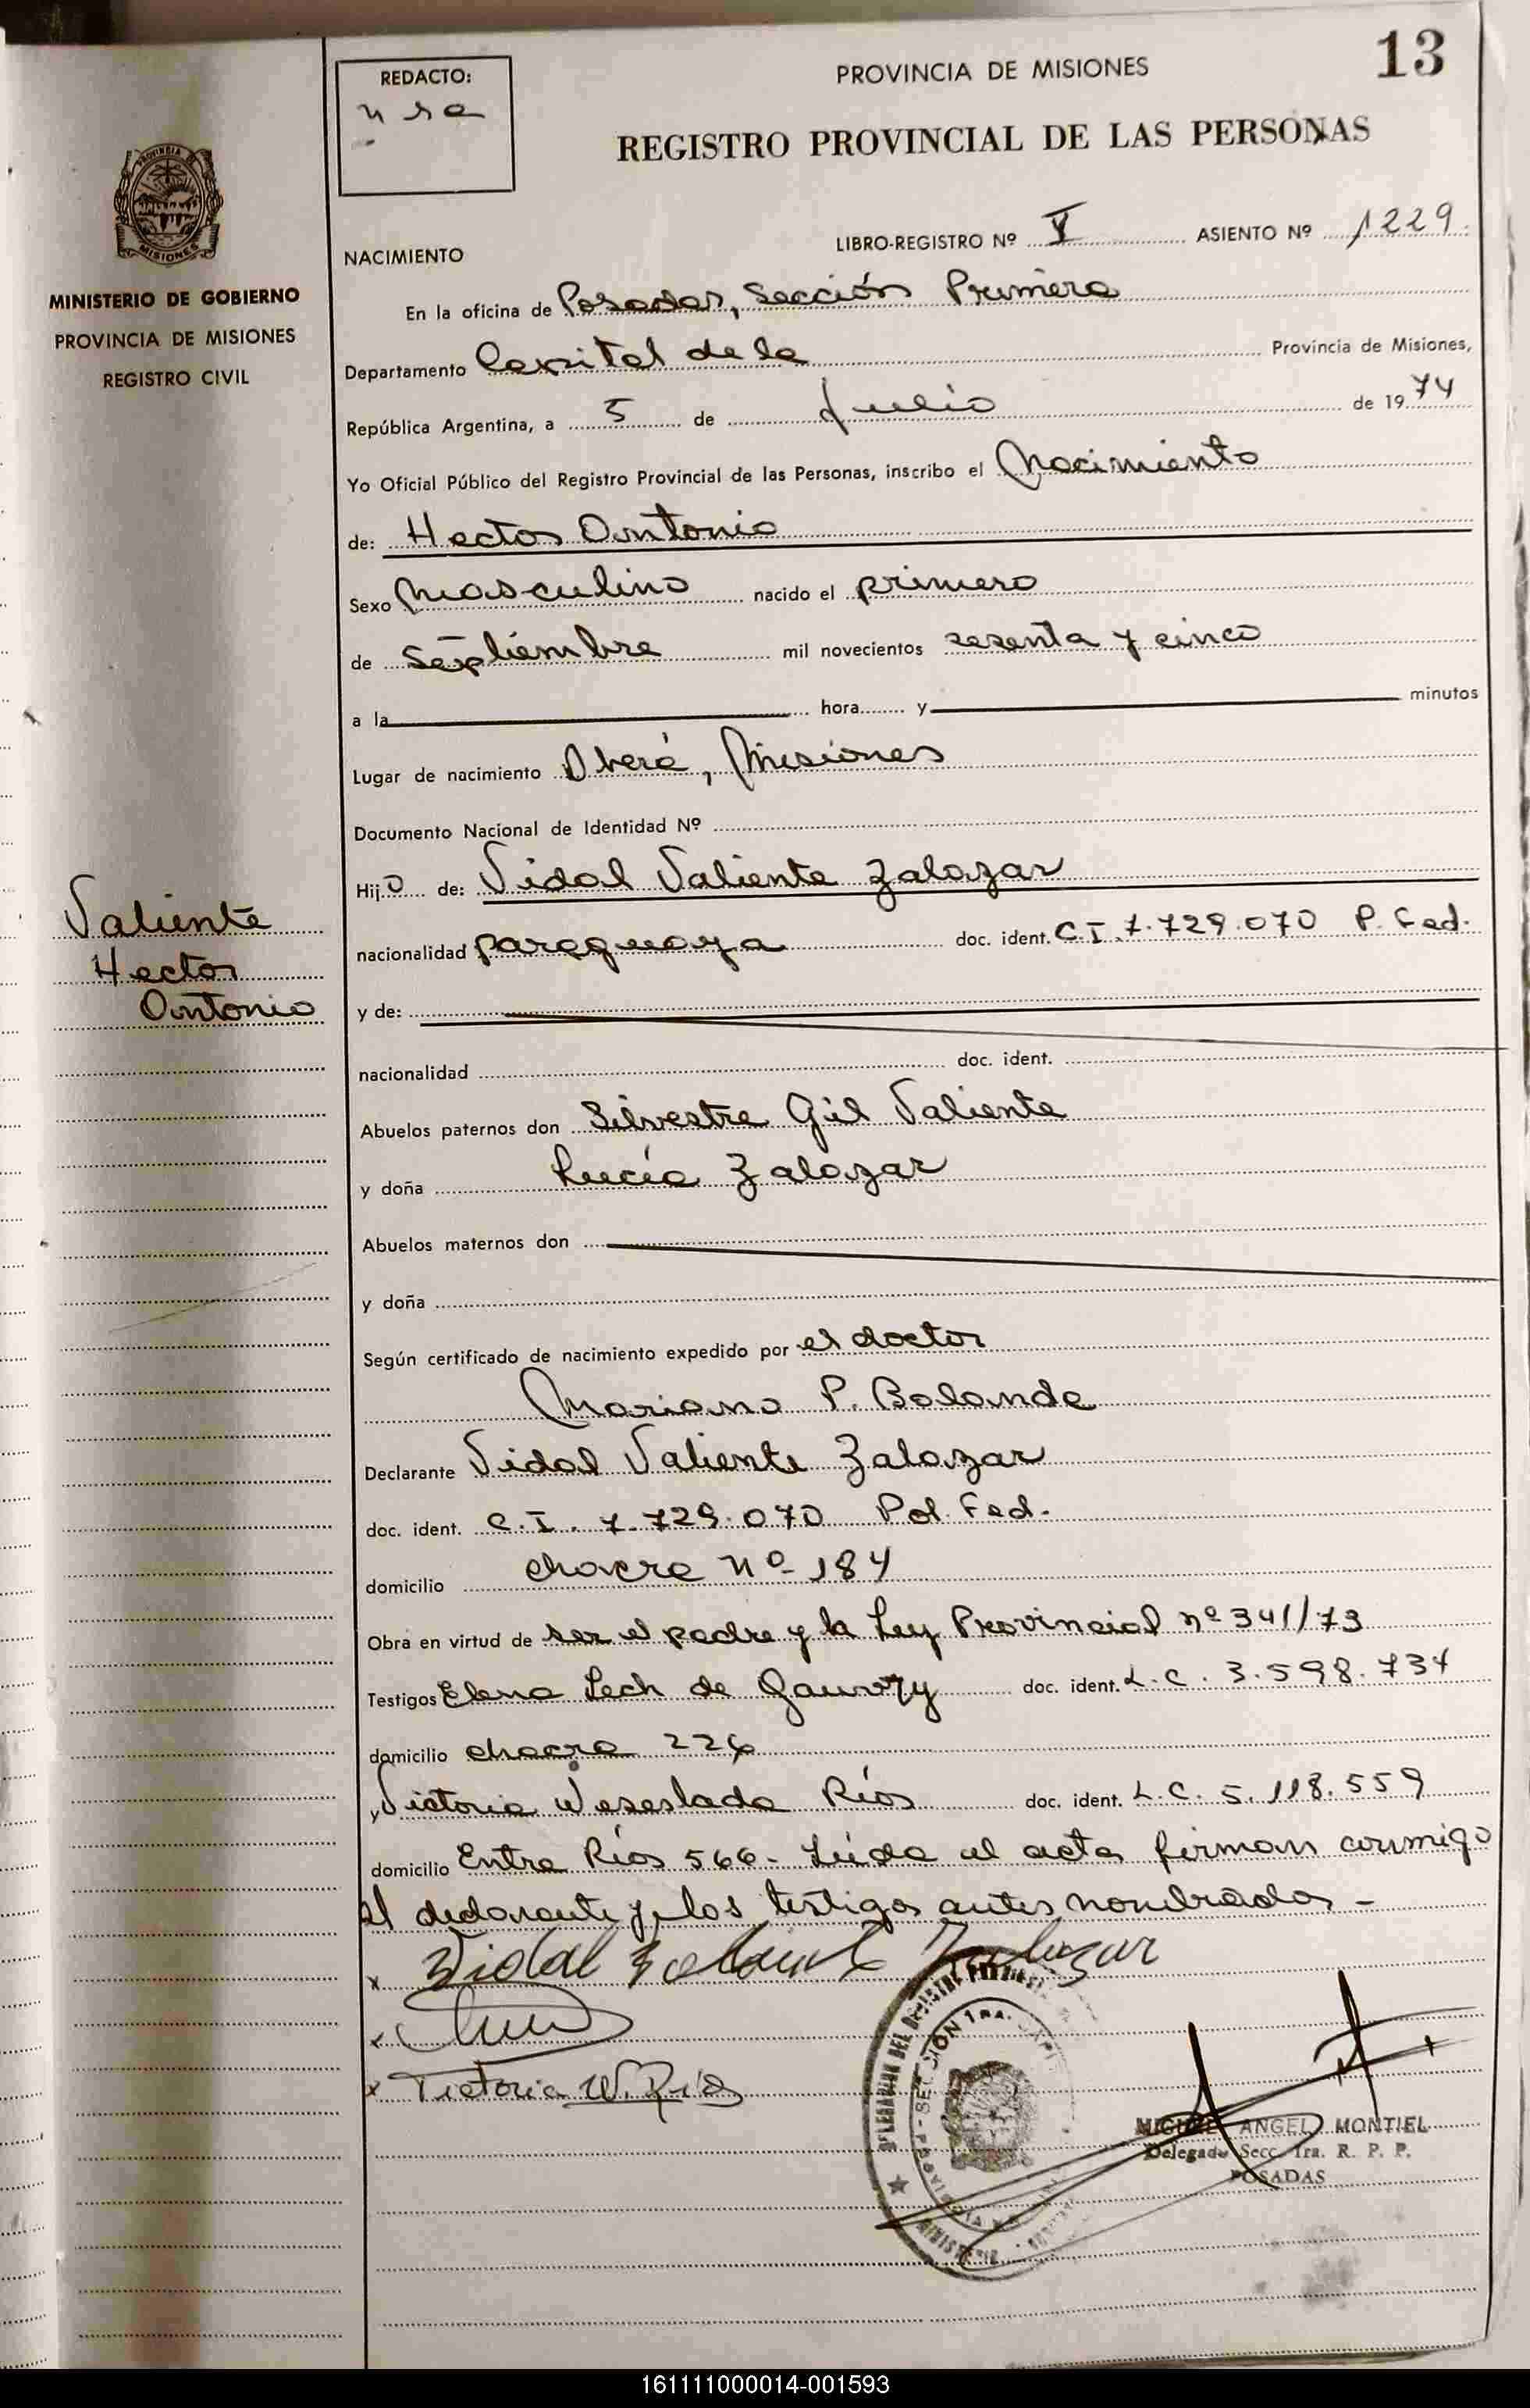 13
REDACTO:
PROVINCIA DE MISIONES
REGISTRO PROVINCIAL DE LAS PERSONAS
PROVINCIA
MISIONES
MINISTERIO DE GOBIERNO
PROVINCIA DE MISIONES
REGISTRO CIVIL
NACIMIENTO
LIBRO-REGISTRO Nº V ASIENTO Nº 1229
En la oficina de Posadas, Sección Primera
Departamento Capital de la Provincia de Misiones,
República Argentina, a 5 de Julio de 1974
Yo Oficial Público del Registro Provincial de las Personas, inscribo el Nacimiento
de: Hector Antonio
Sexo Masculino nacido el primero
de Septiembre mil novecientos sesenta y cinco
a la hora y minutos
Lugar de nacimiento Oberá, Misiones
Documento Nacional de Identidad Nº
Hijo de: Vidal Valiente Zalazar
nacionalidad paraguaya doc. ident. C.I. 7.729.070 P. Fed.
Valiente
Hector
Antonio
y de:
nacionalidad doc. ident.
Abuelos paternos don Silvestre Gil Valiente
y doña Lucía Zalazar
Abuelos maternos don
y doña
Según certificado de nacimiento expedido por el doctor
Mariano P. Bolande
Declarante Vidal Valiente Zalazar
doc. ident. C.I. 7.729.070 Pol. Fed.
domicilio chacra Nº 184
Obra en virtud de ser el padre y la Ley Provincial nº 341/73
Testigos Elena Lech de doc. ident. L.C. 3.598.734
domicilio chacra 226
y Victoria Weseslada Ríos doc. ident. L.C. 5.118.559
domicilio Entre Ríos 566- Leída el acta firman conmigo
el declarante y los testigos antes nombrados -
x Vidal Valiente Zalazar
x
x Victoria W. Ríos
SECCION 1RA.
MIGUEL ANGEL MONTIEL
Delegado Secc. 1ra. R. P. P.
POSADAS
161111000014-001593